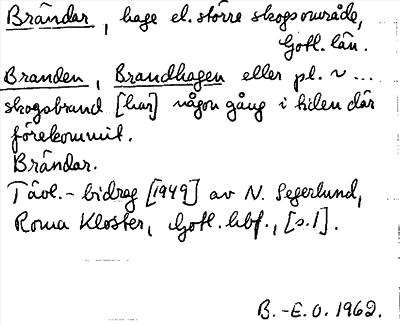 Brändar, hage el. större skogsområde,
Gotl. län.
Branden, Brandhagen eller pl. ~ ...
skogsbrand [har] någon gång i tiden där
förekommit.
Brändar.
Tävl.-bidrag [1949] av N. Segerlund,
Roma Kloster, Gotl. hbf., [s.1].
B.-E.O. 1962.